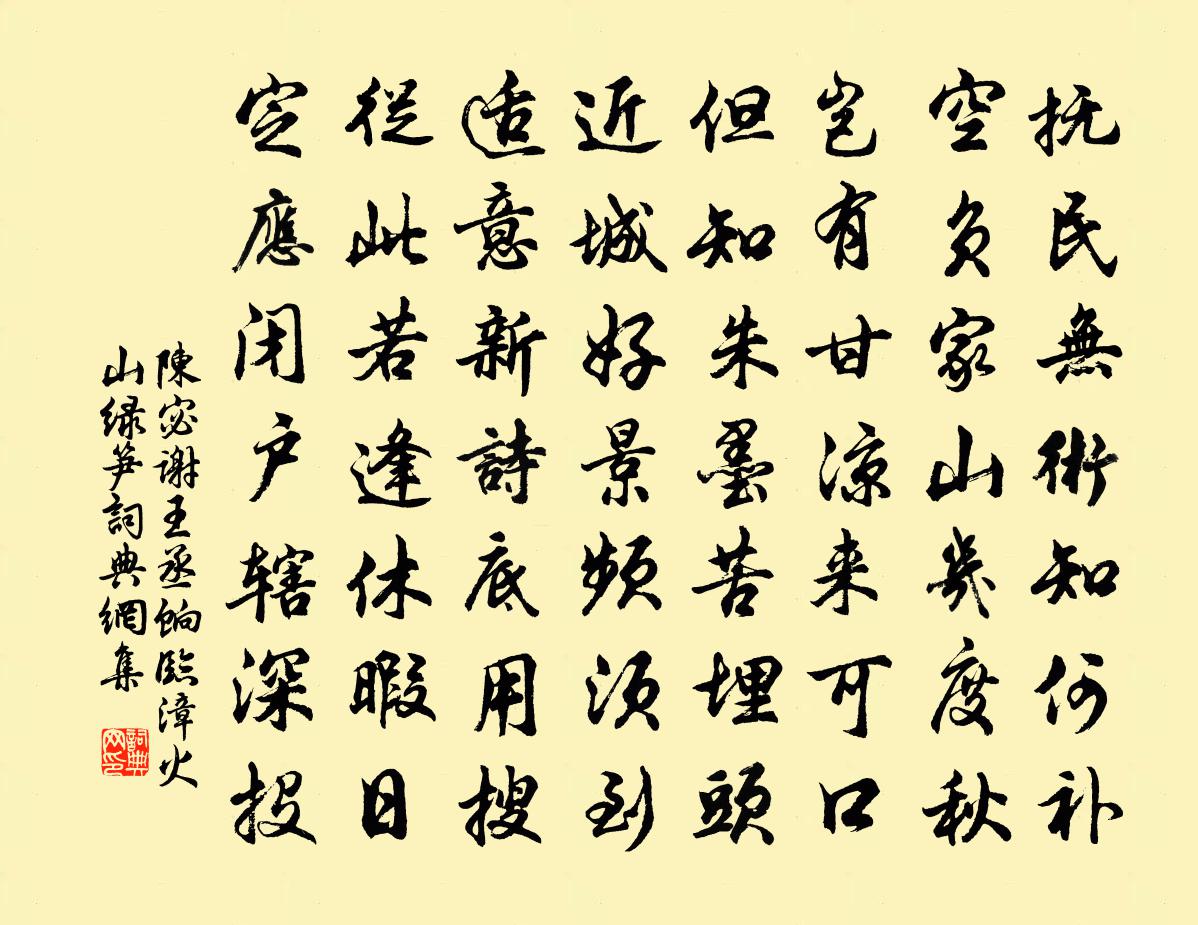 抚民無術知何补
空负家山幾度秋
岂有甘凉来可口
但知朱墨苦埋頭
近城好景频须到
适意新詩底用搜
從此若逢休暇日
定應闭户辖深投
陳宓谢王丞餉臨漳火
山绿笋詞典網集
詞典网印